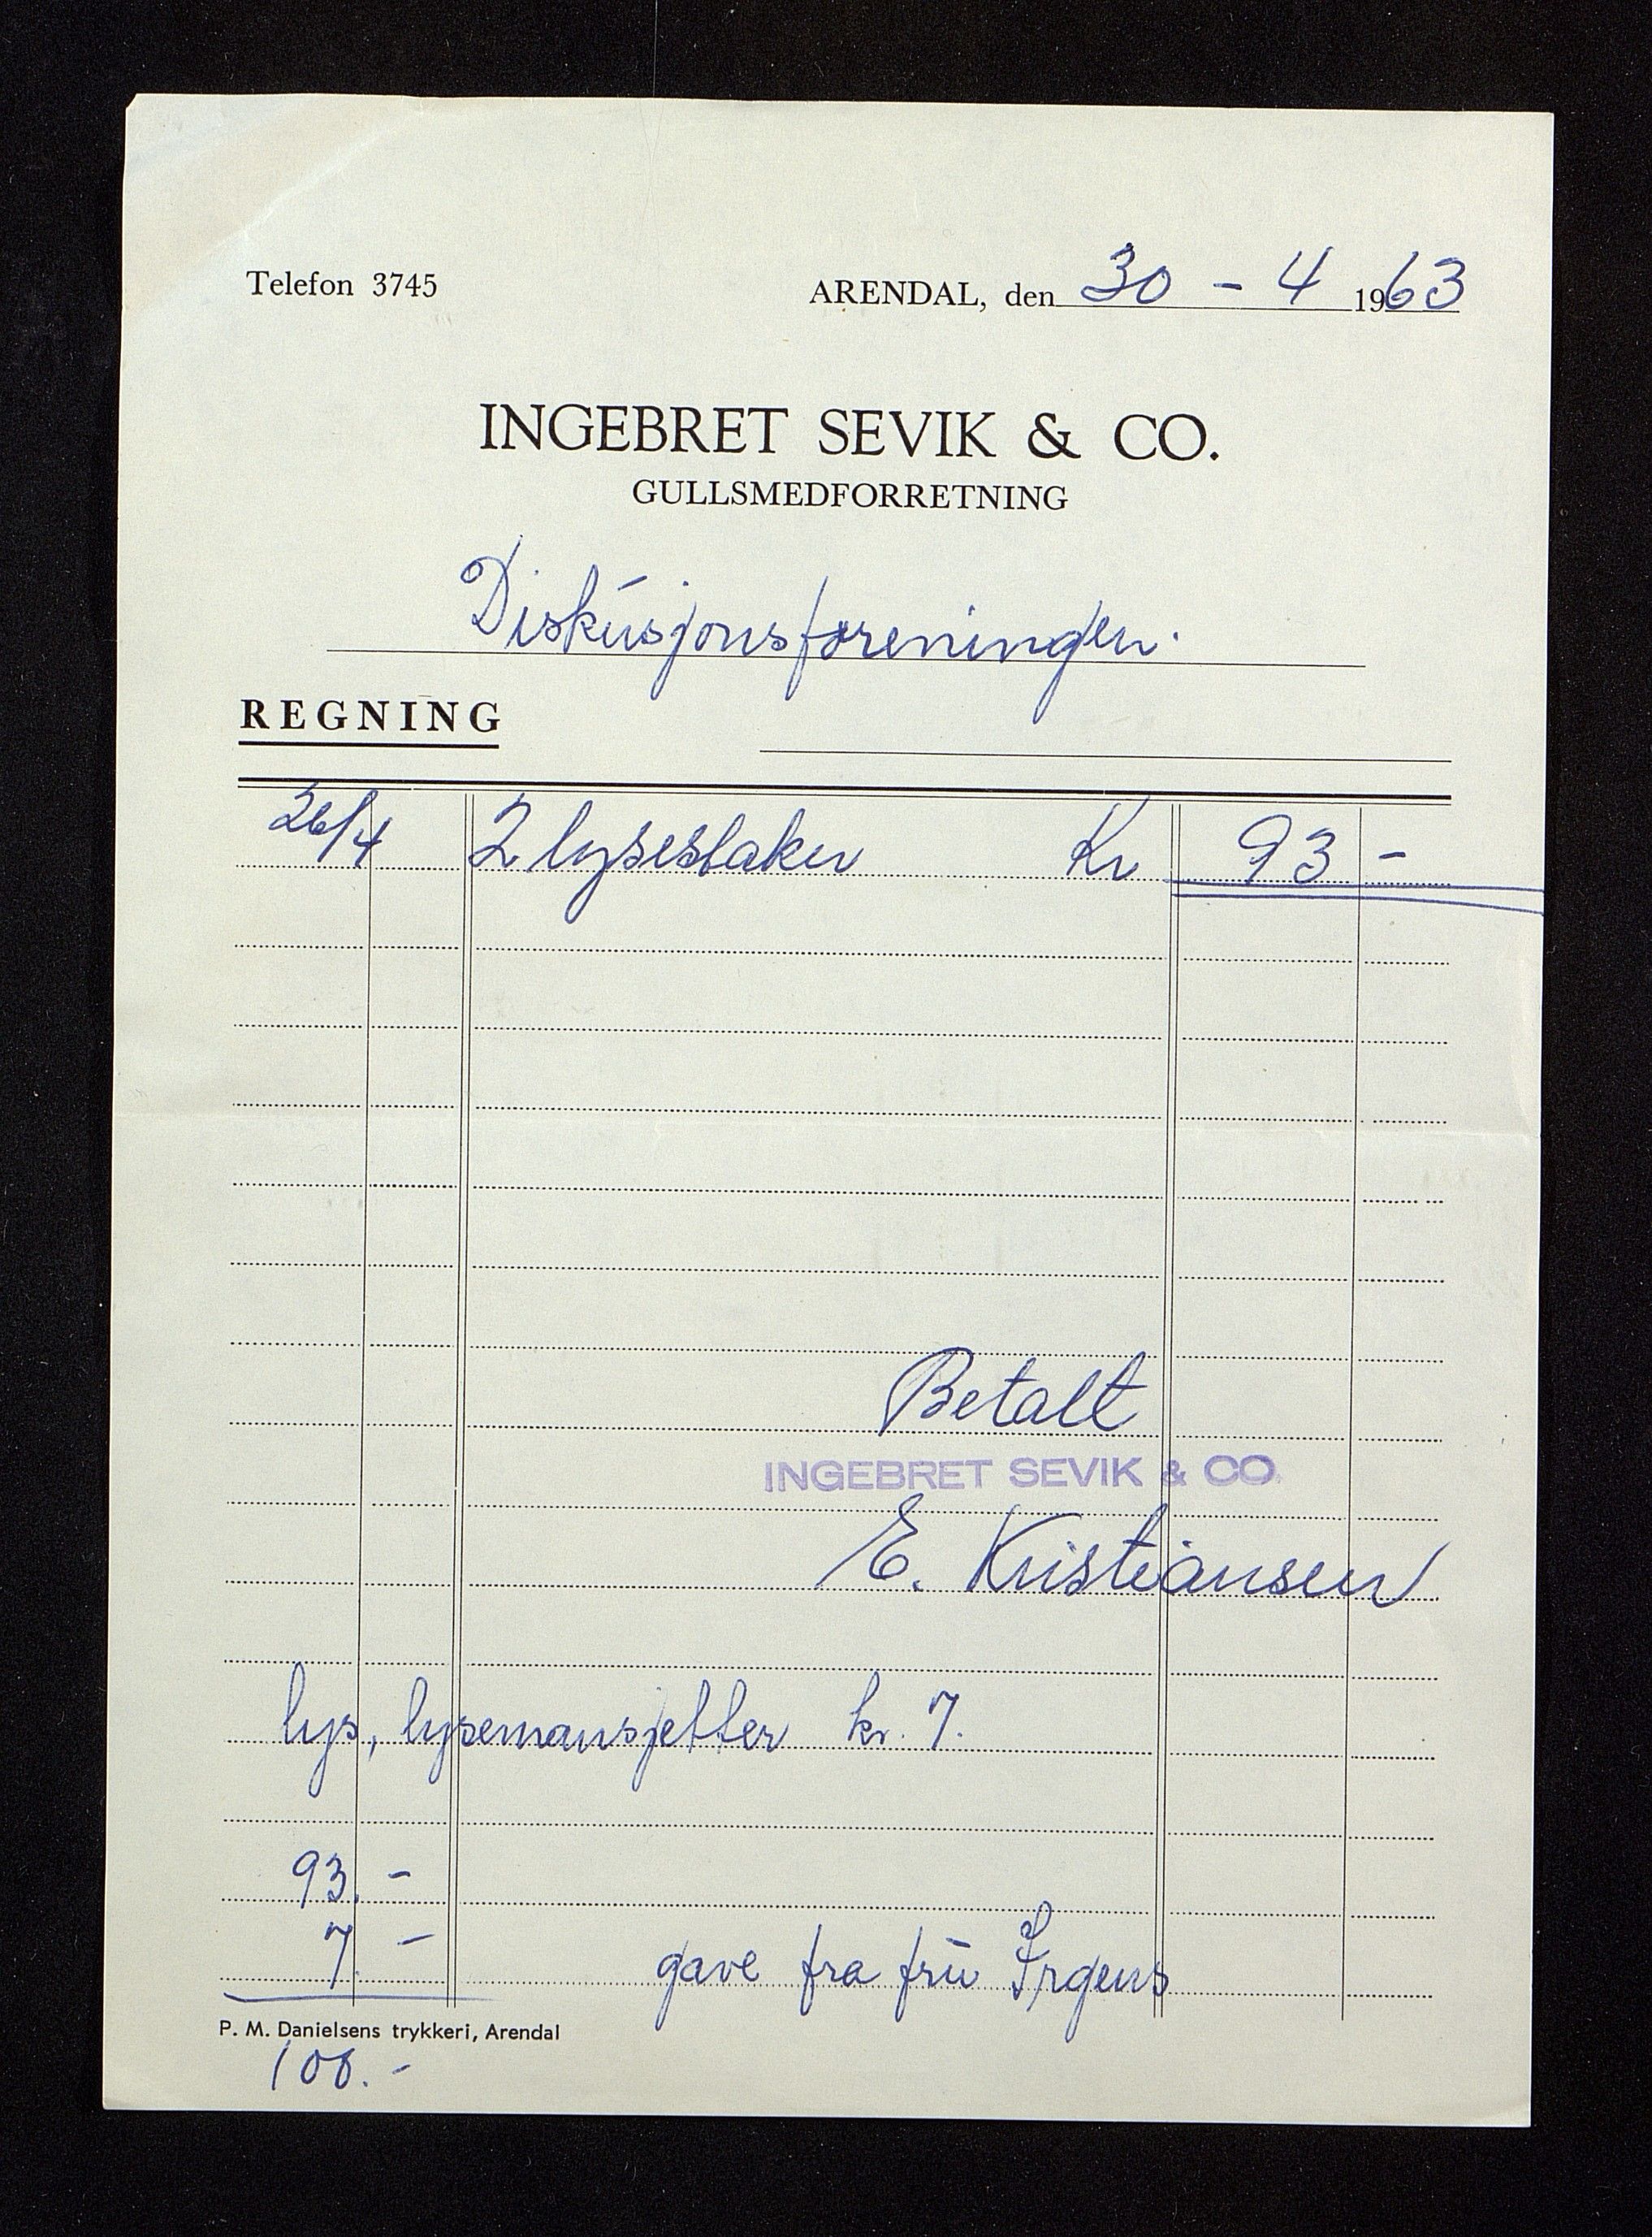 Telefon 3745 ARENDAL, den 30 - 4 1963
INGEBRET SEVIK & CO.
GULLSMEDFORRETNING
Diskusjonsforeningen.
REGNING
26/4 2 lysestaker Kr 93 -
Betalt
INGEBRET SEVIK & CO.
E. Kristiansen
lys, lysemansjetter kr. 7.
93. -
7. - gave fra fru Irgens
P. M. Danielsens trykkeri, Arendal
100. -